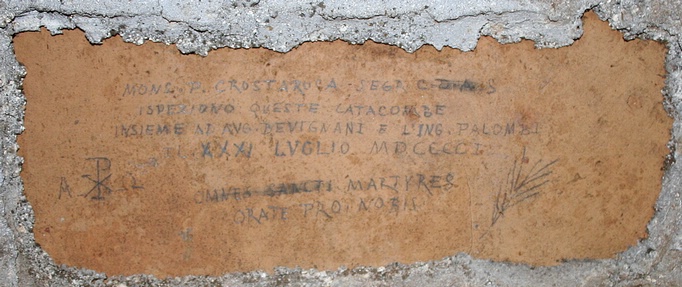 MONS P. CROSTAROSA SEGR C D A S
ISPEZIONO QUESTE CATACOMBE
INSIEME AL AVG. BEVIGNANI E L'ING. PALOMBI
IL XXXI LVGLIO MDCCCCI
A
OMNES SANCTI MARTYRES
ORATE PRO NOBIS